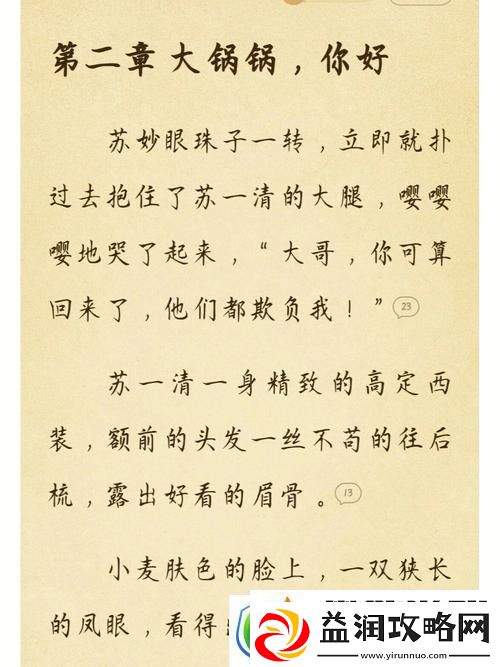 第二章 大锅锅，你好
苏妙眼珠子一转，立即就扑
过去抱住了苏一清的大腿，嘤嘤
嘤地哭了起来，“大哥，你可算
回来了，他们都欺负我！” 23
苏一清一身精致的高定西
装，额前的头发一丝不苟的往后
梳，露出好看的眉骨。 13
小麦肤色的脸上，一双狭长
的凤眼，看得
益润攻略网
www.yirunnuo.com